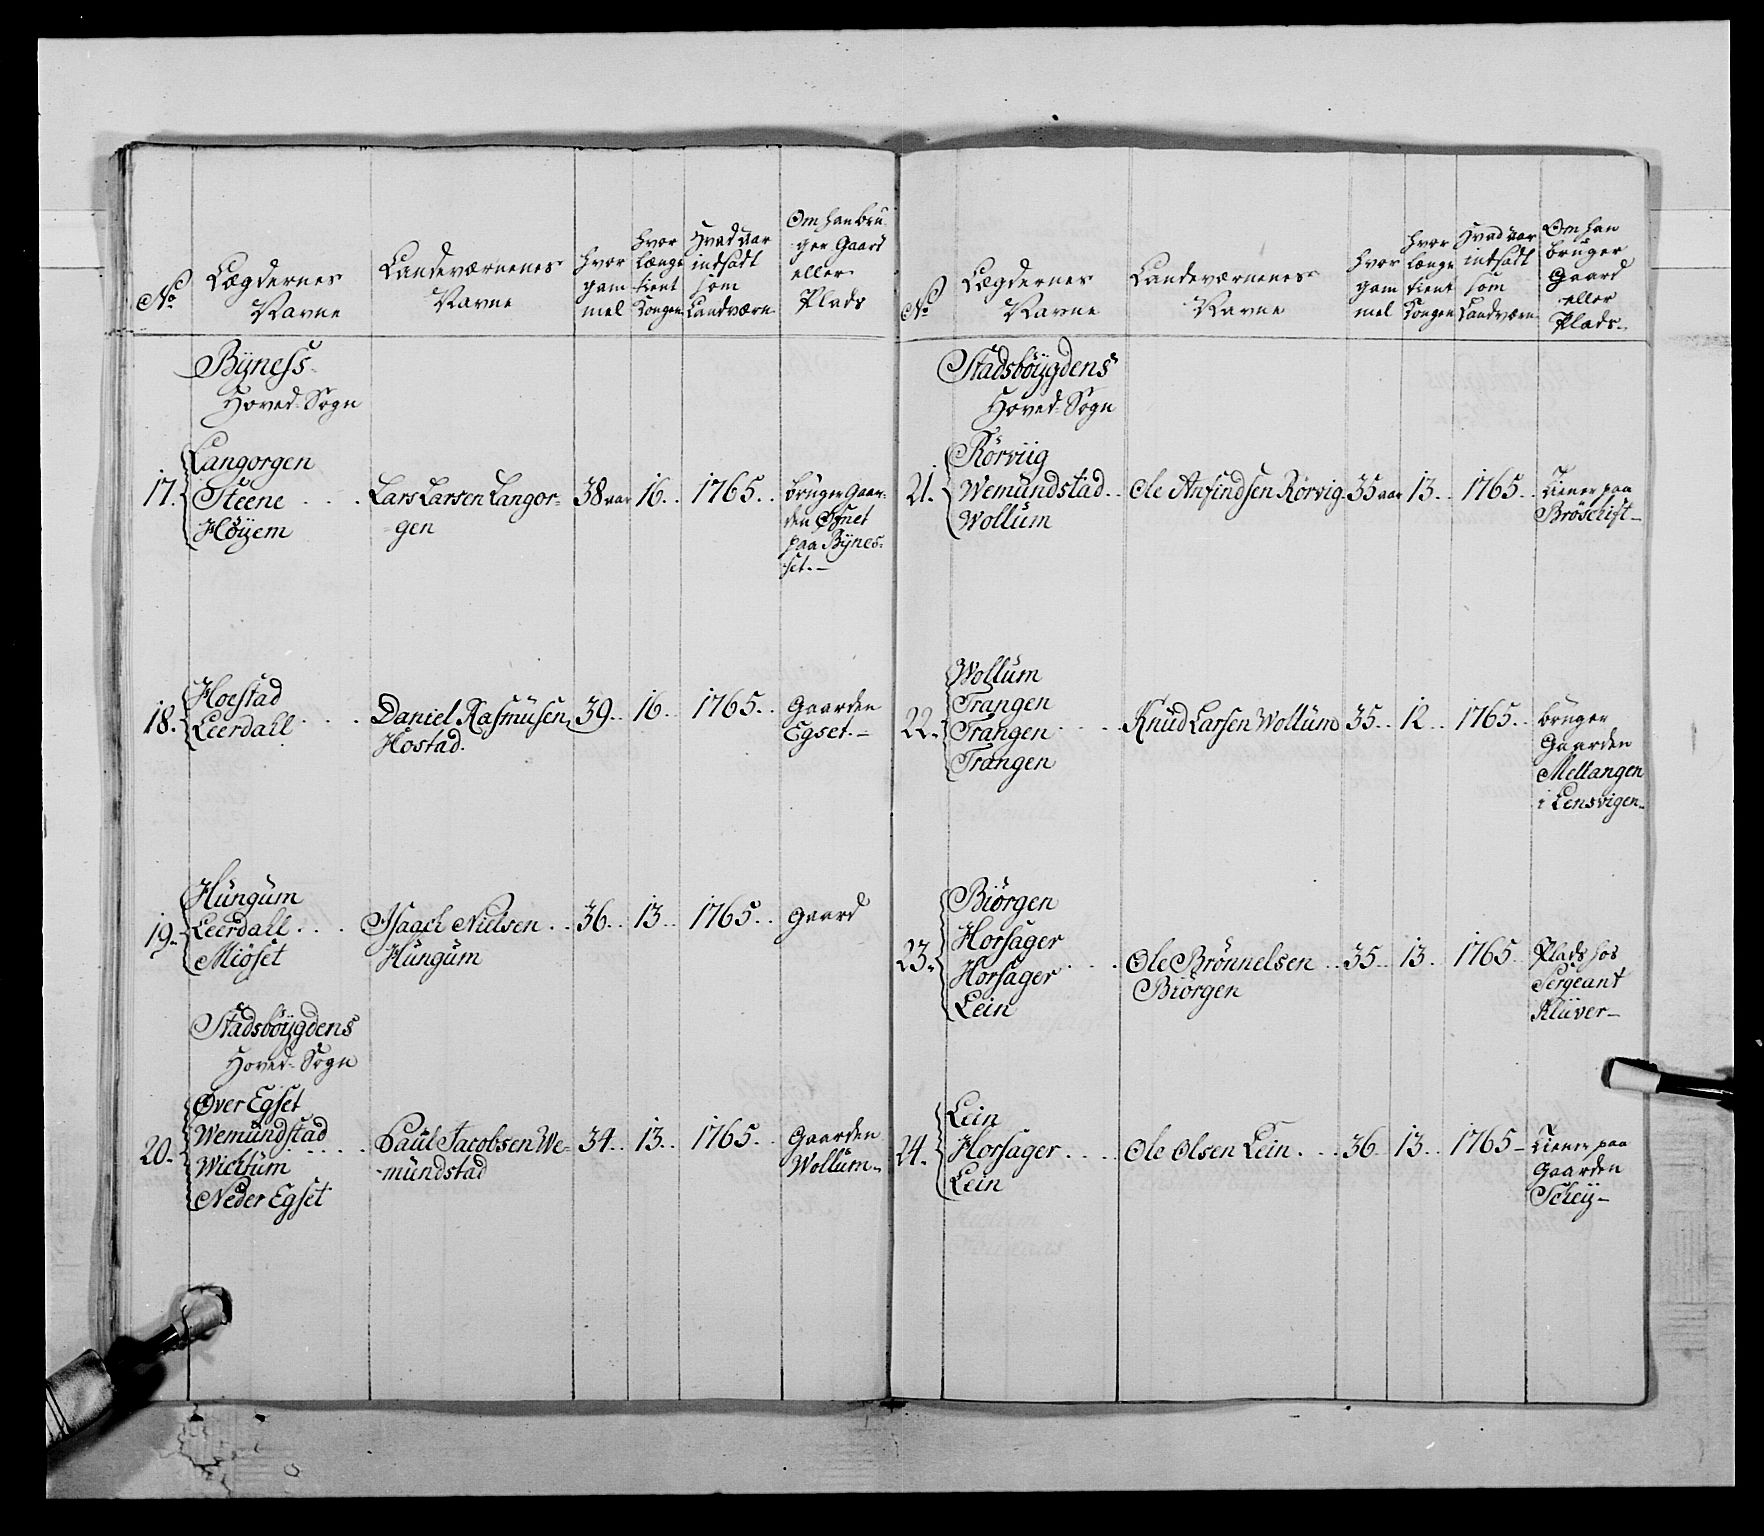 No
Lægdernes
Navne
Landeværnenes
Navne
hvor
gam
mel
hvor
længe
tient
Kongen
Hvad aar
indsadt
som
Landværn
Om han bru
ger Gaard
eller
Plads
Byness
Hoved-Sogn
17.
Langorgen
Steene . . . .
Høÿem
Lars Larsen Langor-
gen
38 aar
16. .
1765. .
bruger Gaar-
den
paa Bÿnes-
set.-
18.
Hoestad
Leerdahl . . . .
Daniel Rasmusen
Hostad.
39. .
16. .
1765. .
Gaarden
Egset.-
19.
Hungum
Leerdahl . . . .
Miøset
Isaach Nielsen . .
Hungum
36. .
13. .
1765. .
Gaard
Stadsbøÿgdens
Hoved-Sogn
20.
Over Egset
Wemundstad
Wichtum . . . .
Neder Egset
Paul Jacobsen We-
-mundstad
34. .
13. .
1765. .
Gaarden
Wollum.-
No
Lægdernes
Navne
Landeværnenes
Navne
hvor
gam
mel
hvor
længe
tient
Kongen
Hvad aar
indsadt
som
Landværn
Om han
bruger
Gaard
eller
Plads.-
Stadsbøÿgdens
Hoved-Sogn
21.
Rørviig
Wemundstad. .
Wollum
Ole Anfindsen Rørvig
35 aar
13. .
1765. .
Tiener paa
22.
Wollum
Trangen
Trangen . . . .
Trangen
Knud Larsen Wollum
35. .
12. .
1765. .
bruger
Gaarden
Mellangen
i Lensvigen-
23.
Biørgen
Horsager
Horsager . . . .
Lein
Ole Brønnelsen . .
Biørgen
35. .
13. .
1765.
Plads hos
Sergeant
Klüver-
24.
Lein
Horsager . . . .
Lein
Ole Olsen Lein. . . .
36
13. .
1765-
Tiener paa
Gaarden
Scheÿ-